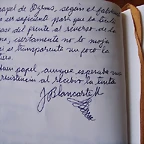 papel de 90grms, según el fabrica
ser suficiente para que la tinta
pase del frente al reverso de la
ciertamente no lo moja
se transparenta un poco la
buen papel, aunque esperaba más
resistencia al recibir la tinta
JBlancarteM